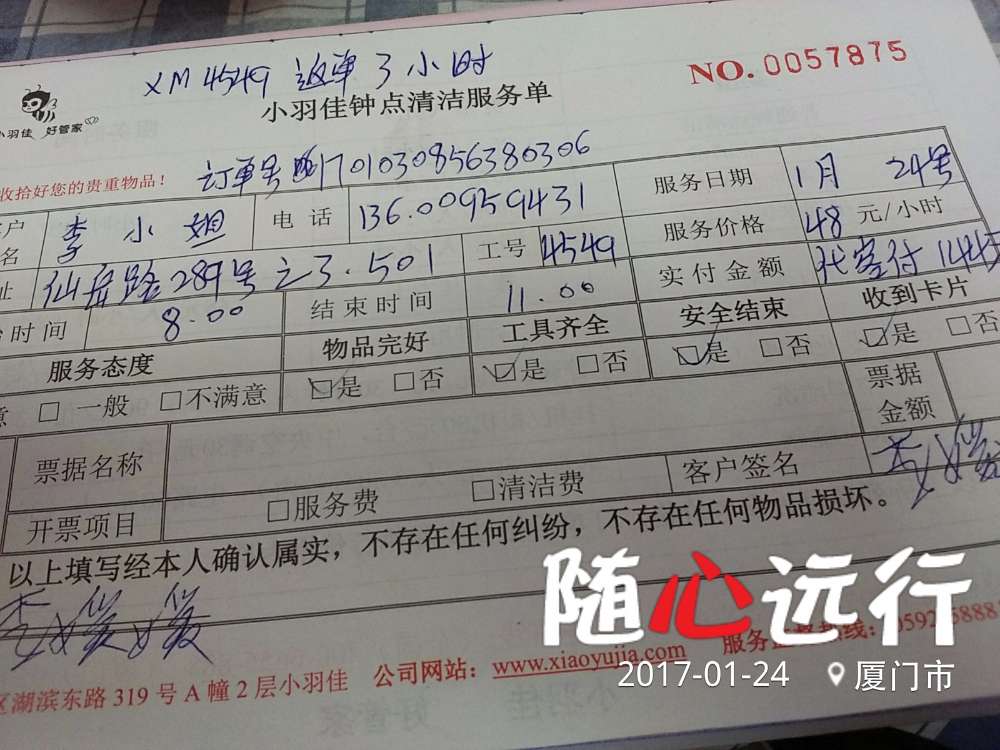 XM4549 返单3小时
NO.0057875
小羽佳 好管家
小羽佳钟点清洁服务单
收拾好您的贵重物品！
订单号 1701030856380306
名 李小姐 电话 136.00959431 服务日期 1月 24号
服务价格 48 元/小时
址 仙岳路289号之3.501 工号 4549 实付金额 代客付 144
时间 8.00 结束时间 11.00
服务态度 物品完好 工具齐全 安全结束 收到卡片
意 □一般 □不满意 ☑是 □否 ☑是 □否 ☑是 □否 ☑是 □否
票据名称 票据金额
开票项目 □服务费 □清洁费 客户签名 李媛
以上填写经本人确认属实，不存在任何纠纷，不存在任何物品损坏。
李媛媛
随心远行
区湖滨东路319号A幢2层小羽佳 公司网站：www.xiaoyujia.com 服务
热线：0592
2017-01-24 厦门市